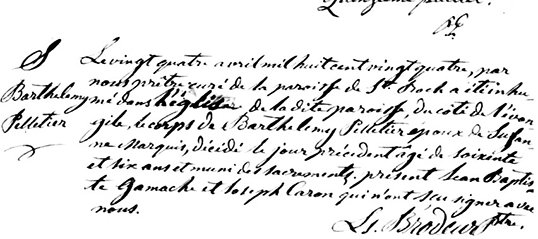 Quinzième juillet.
S
Barthelemy
Pelletier
Le vingt quatre avril mil huit cent vingt quatre, par
nous prêtre curé de la paroisse de St. Roch a été inhu-
mé dans l'église de la dite paroisse, du côté de l'évan-
gile, le corps de Barthelemy Pelletier époux de Susan-
ne Marquis, décédé le jour précédent agé de soixante
et six ans et muni des sacrements, présent Jean Baptis-
te Gamache et Joseph Caron qui n'ont seu signer avec
nous.
Ls. Brodeur Ptre.